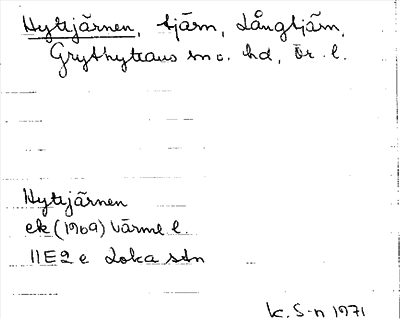 Hyttjärnen, tjärn, Långtjärn,
Grythyttans sn o. hd, Ör. l.
Hyttjärnen
ek (1969) Värml l.
11E2e Loka stn
K. S-n 1971